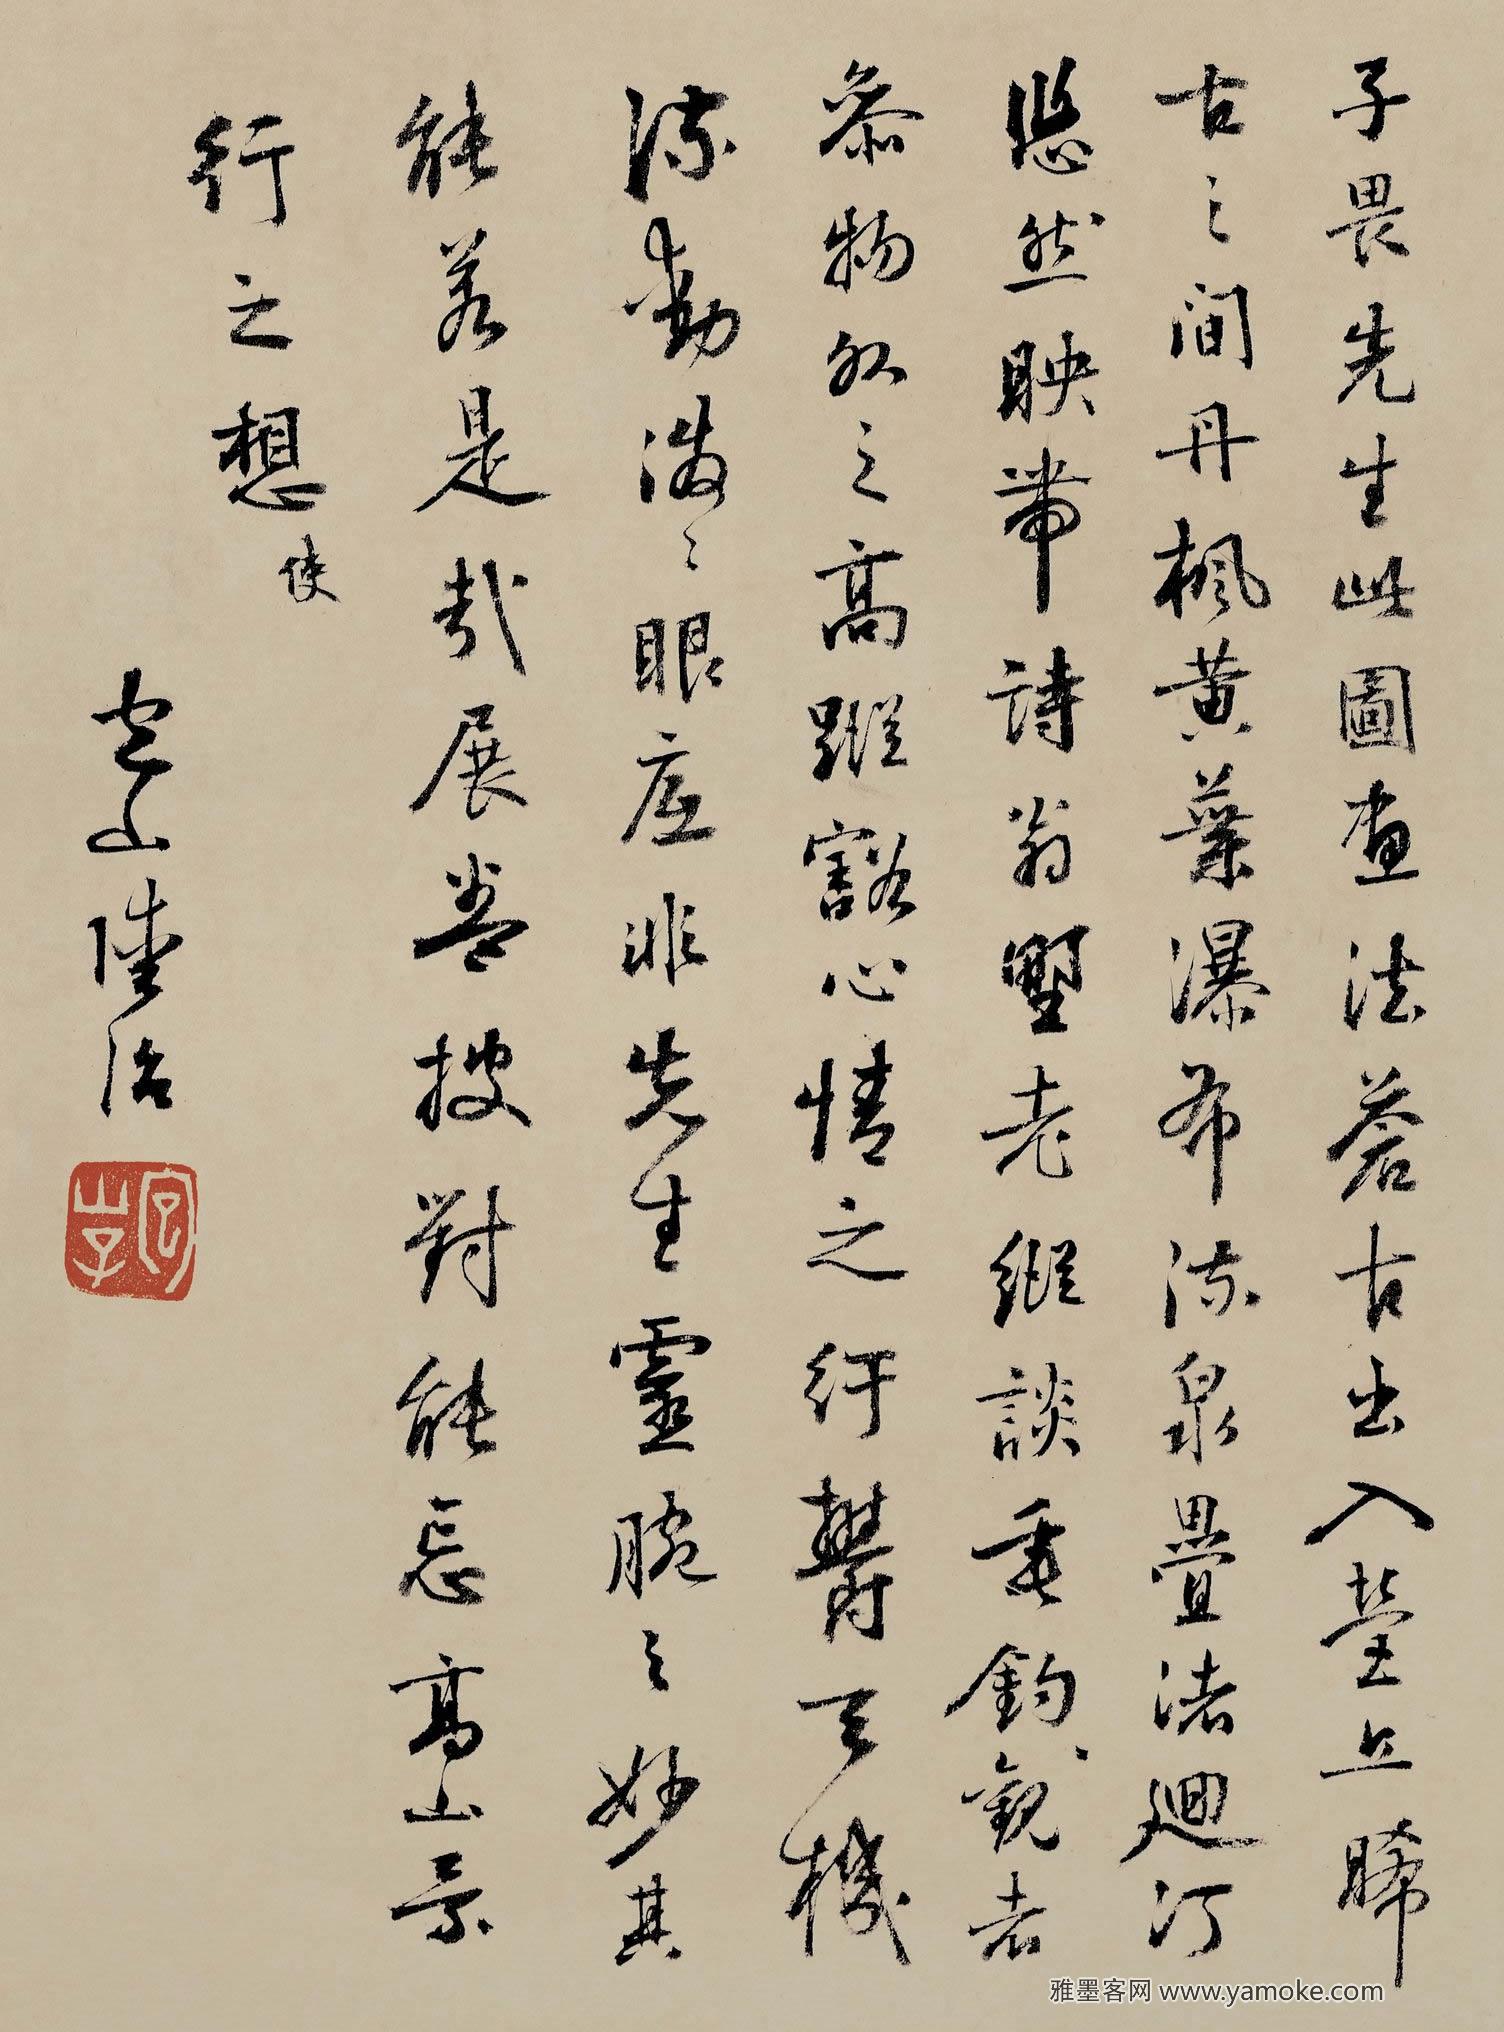 子畏先生此圖畫法蒼古出入營丘晞
古之間丹楓黃葉瀑布流泉疊渚迴汀
悠然映帶詩翁墅老縱談垂釣觀者
參物外之高蹤豁心情之紆鬱天機
流動潑〻眼底非先生靈腕之妙其
能若是哉展卷披對能忘高山景
行之想使
包山陸治
包山子
雅墨客网 www.yamoke.com